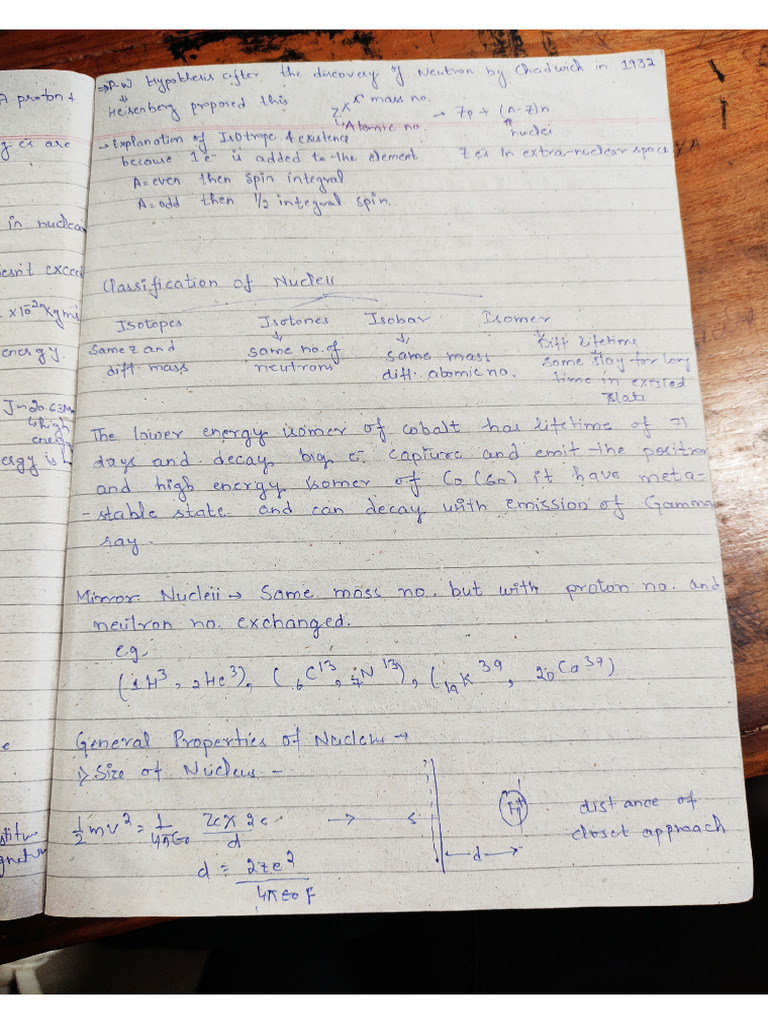 A proton +
g es are
in nuclea
oesn't exceed
x10⁻²⁰ Kgm/s
energy.
J~20.63Me
↳high
energy
ergy is
e
stitu
gnetu
⇒ P-N Hypothesis after the discovery of Neutron by Chadwick in 1932
↓
Heisenberg proposed this
zXᴬ mass no. → Zp + (A-Z)n
↳Atomic no. nuclei
→ Explanation of Isotrope & existence
because 1e⁻ is added to the element Z es in extra-nuclear space
A=even then spin integral
A=odd then 1/2 integral spin.
Classification of Nucleii
Isotopes Isotones Isobar Isomer
Same z and same no. of same mass Diff lifetime
diff. mass neutrons diff. atomic no. some stay for long
time in excited
state
The lower energy isomer of cobalt has lifetime of 71
days and decay by e⁻ capture and emit the positron
and high energy isomer of Co (60) it have meta-
-stable state and can decay with emission of Gamma
ray.
Mirror Nucleii → Same mass no. but with proton no. and
neutron no. exchanged.
eg.
(1H³, 2He³), (6C¹³, 7N¹³), (19K³⁹, 20Ca³⁹)
General Properties of Nucleus →
1) Size of Nucleus -
1/2 mv² = 1/4πε0 Ze x 2e/d → d H+ distance of
closet approach
d = 2ze²/4πε0 F